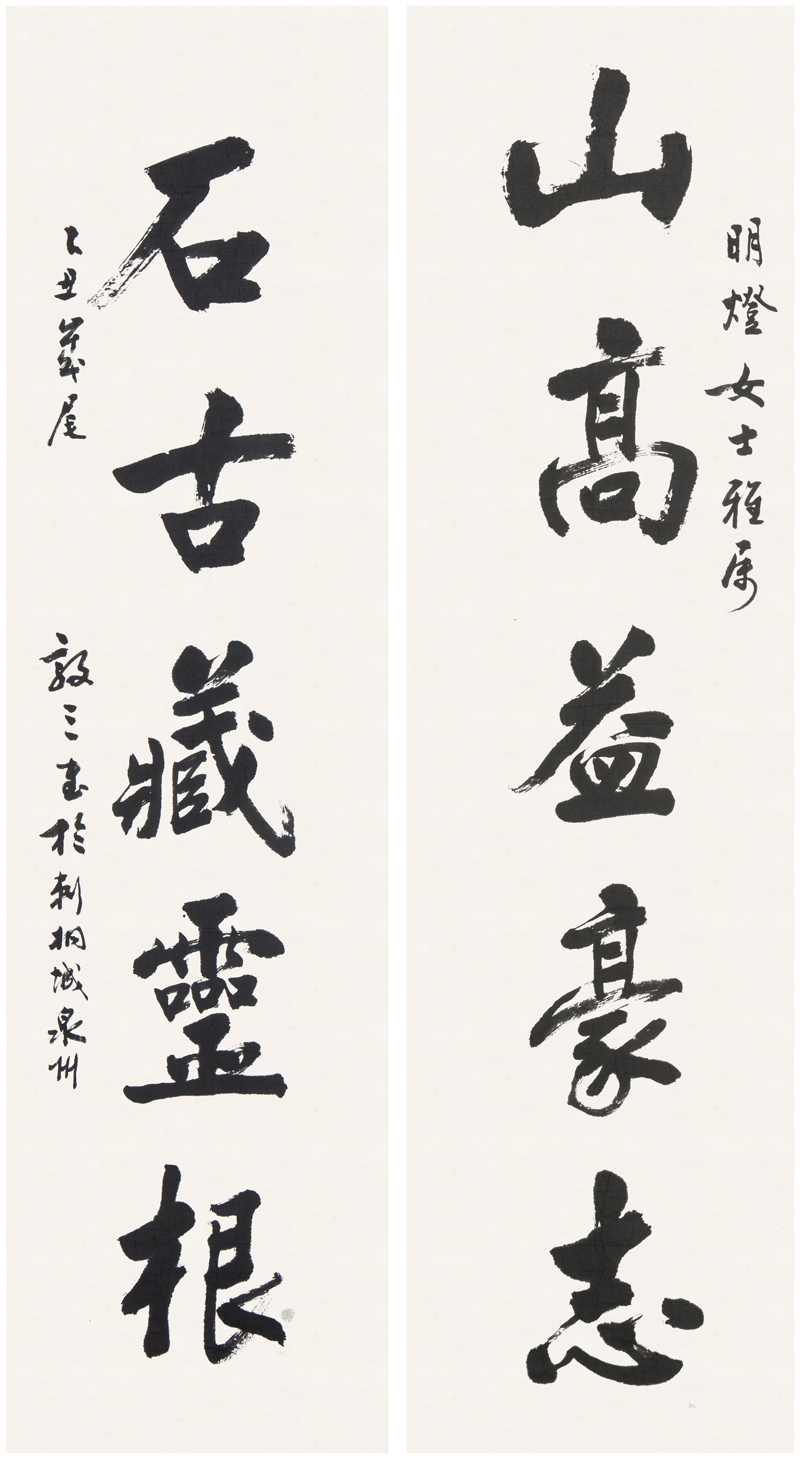 明燈女士雅属
山高益豪志
石古藏靈根
乙丑歲尾
敦三書於刺桐城泉州